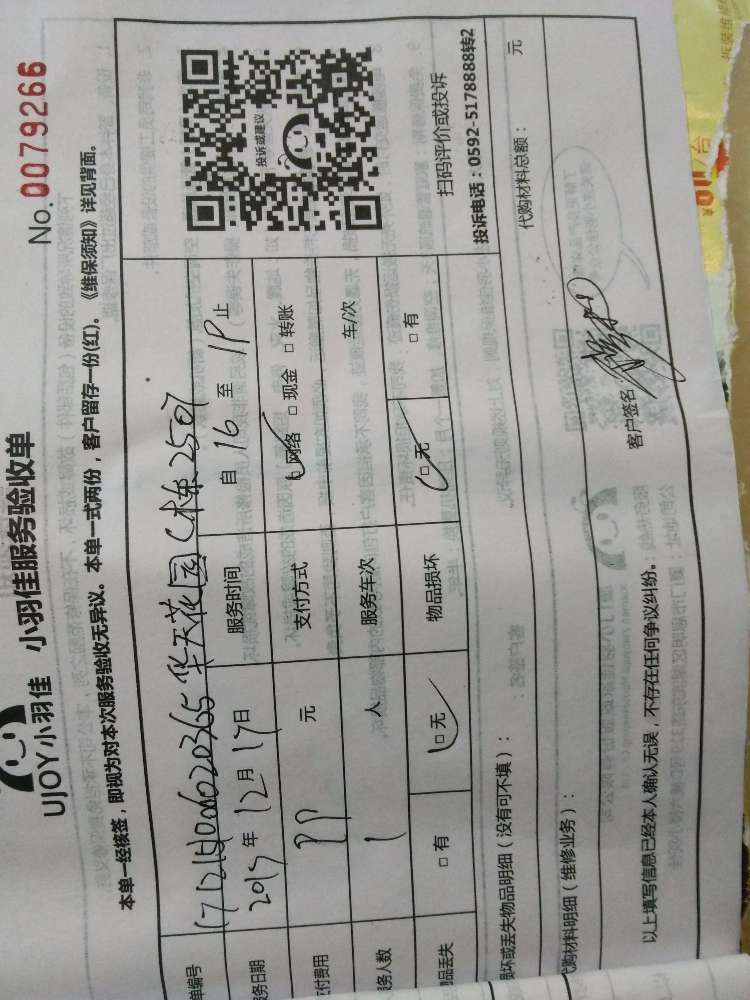 UJOY小羽佳 小羽佳服务验收单
No.0079266
本单一经核签，即视为对本次服务验收无异议。本单一式两份，客户留存一份(红)。《维保须知》详见背面。
单编号 华天花园C栋2507
务日期 2017年12月17日 服务时间 自 16 至 18 止
付费用 元 支付方式 □网络 □现金 □转账
务人数 1 人 服务车次 车/次
物品丢失 □有 □无 物品损坏 □无 □有
投诉或建议
扫码评价或投诉
投诉电话：0592-5178888转2
损坏或丢失物品明细（没有可不填）：
代购材料明细（维修业务）： 代购材料总额： 元
以上填写信息已经本人确认无误，不存在任何争议纠纷。 客户签名：